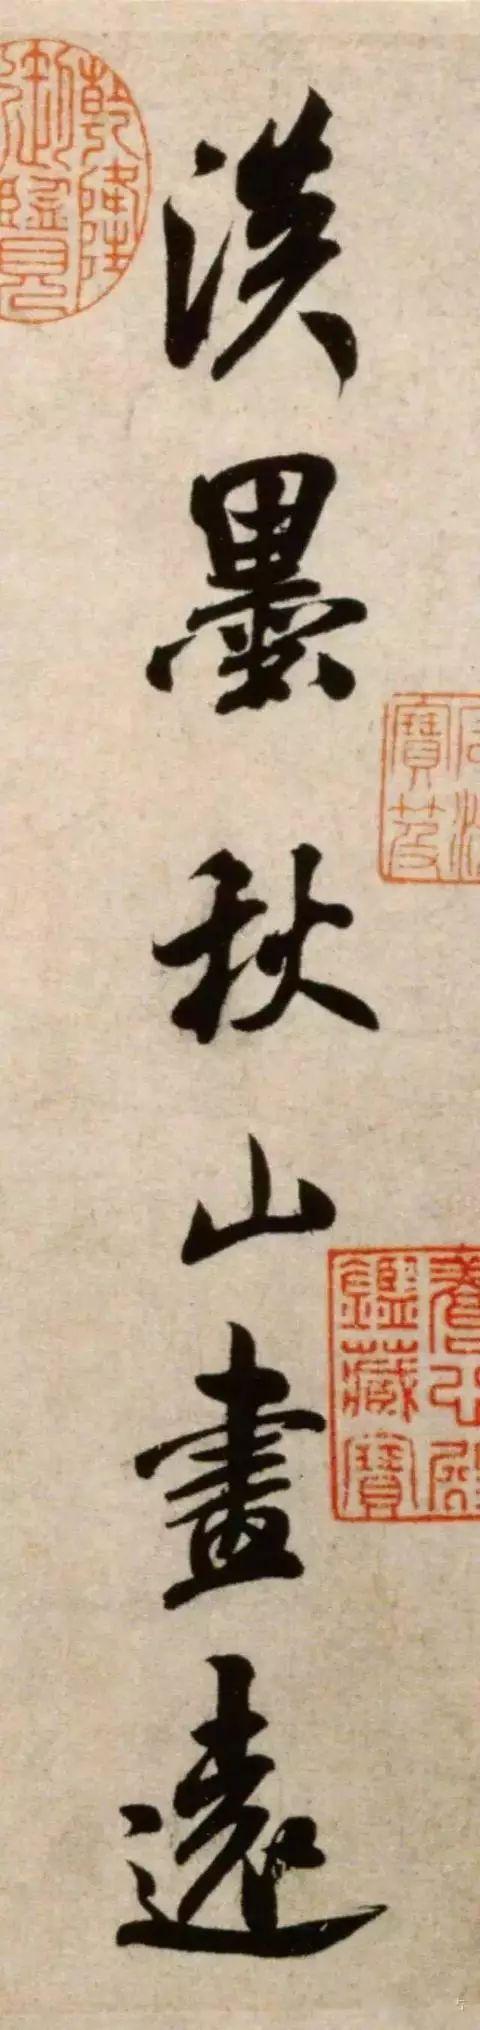 淡墨秋山畫遠
乾隆
御覽
寶笈
養心殿
鑑藏寶